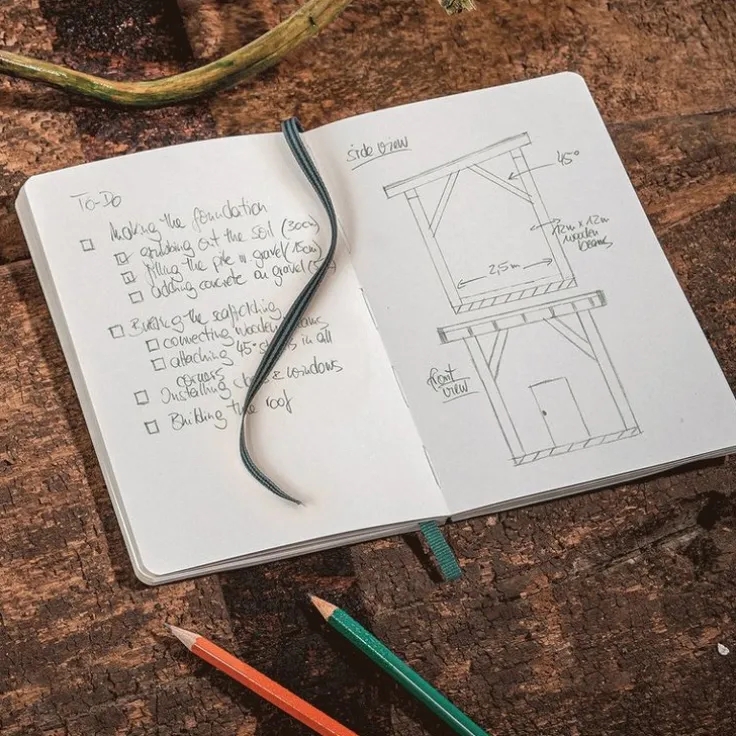 To-Do
Making the foundation
out the soil (30cm)
filling the pit w gravel (15cm)
adding concrete on gravel (
Building the scaffolding
connecting wooden beams
attaching 45° in all
corners
Installing & windows
Building the roof
side view
45°
12cm x 12cm
wooden
beams
2,5m
front
view